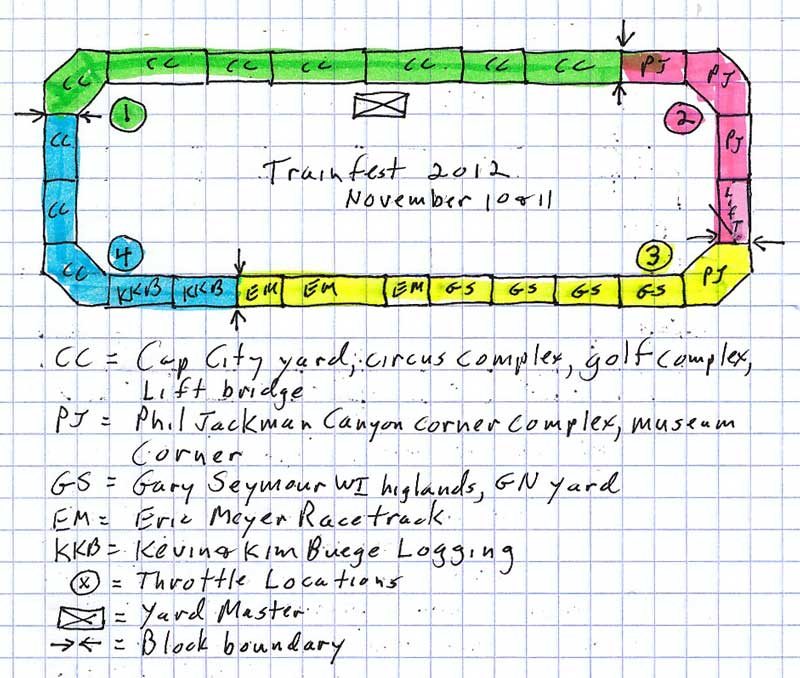 CC CC CC CC CC CC CC PJ PJ
1 2
CC PJ
Trainfest 2012
November 10 & 11
CC LifT
4 3
CC KKB KKB EM EM EM GS GS GS GS PJ
CC = Cap City yard, circus complex, golf complex,
Lift bridge
PJ = Phil Jackman Canyon corner complex, museum
Corner
GS = Gary Seymour WI higlands, GN yard
EM = Eric Meyer Racetrack
KKB = Kevin & Kim Buege Logging
X = Throttle Locations
= Yard Master
→← = Block boundary